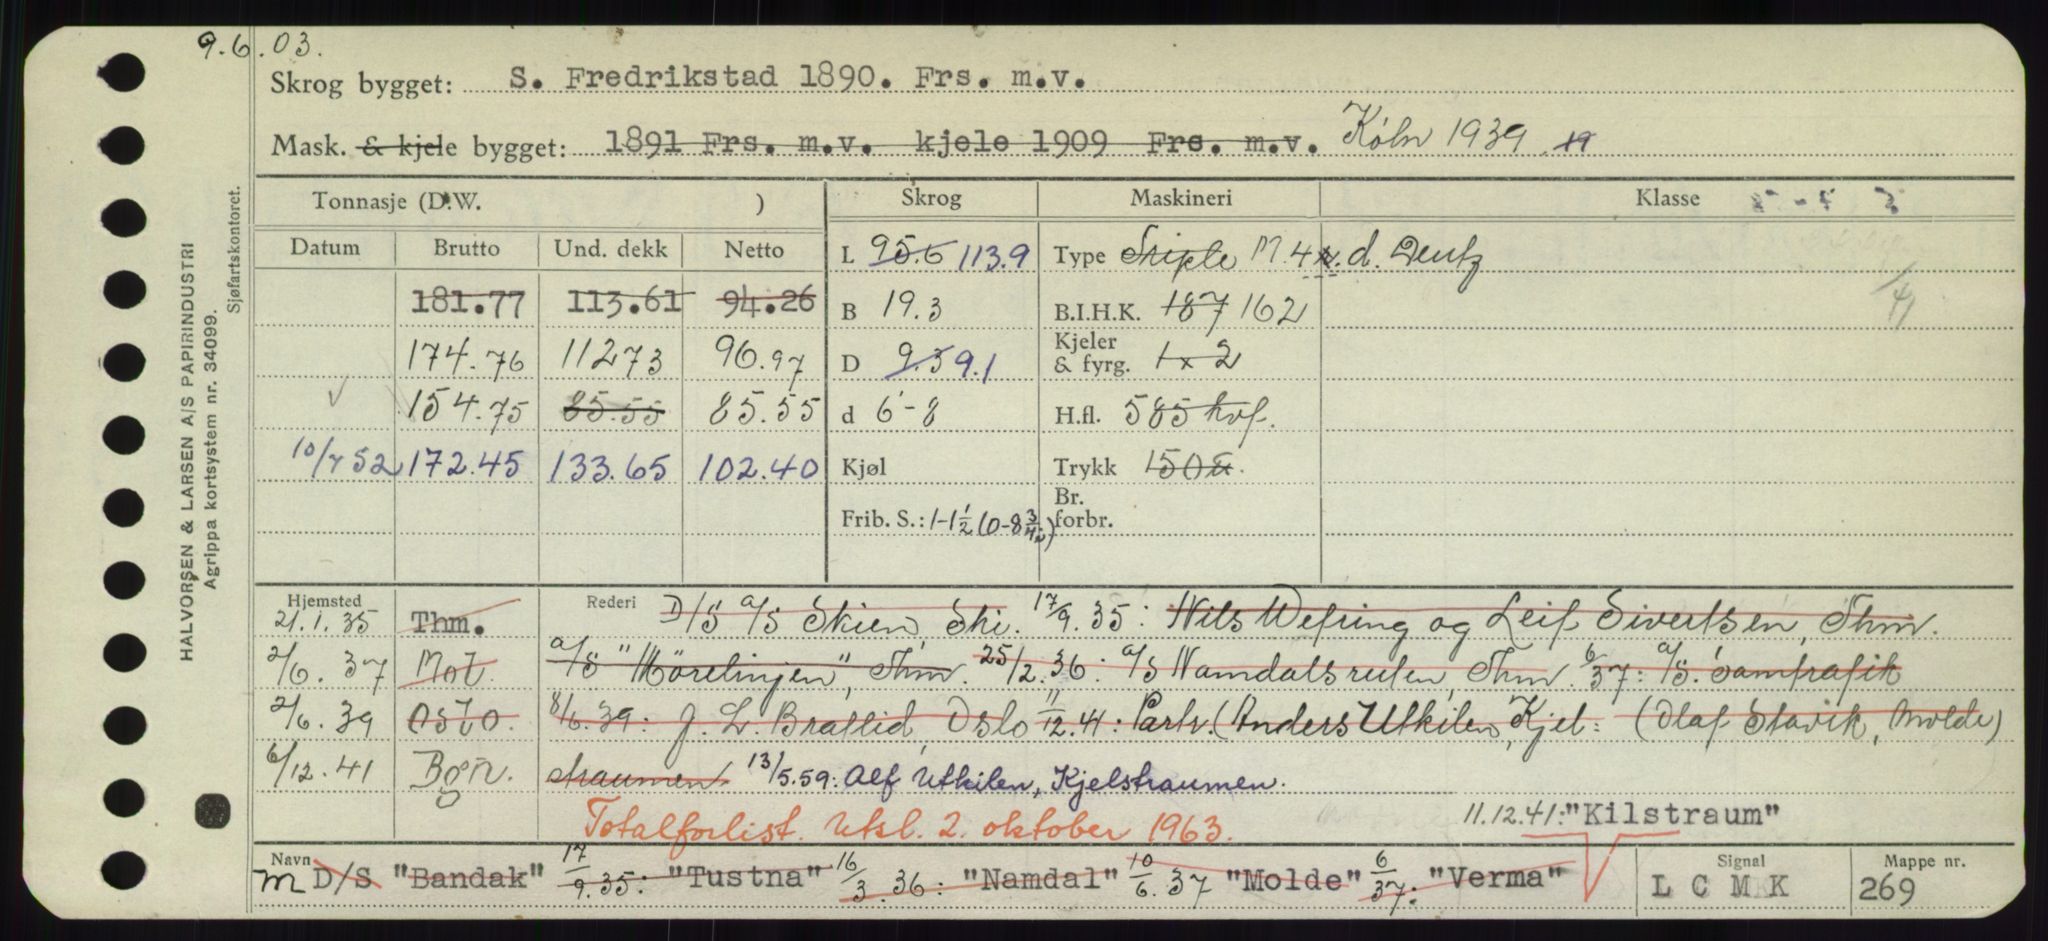 9.6.03.
Skrog bygget: S. Fredrikstad 1890. Frs. m.v.
Mask. & kjele bygget: 1891 Frs. m.v. kjele 1909 Frs. m.v. Köln 1939. 19
HALVORSEN & LARSEN A/S PAPIRINDUSTRI
Agrippa kortsystem nr. 34099.
Sjøfartskontoret.
Tonnasje (D.W. ) Skrog Maskineri Klasse
Datum Brutto Und. dekk Netto L 95.6 113.9 Type Triple M. 4 d. Deutz
181.77 113.61 94.26 B 19.3 B.I.H.K. 187 162
174.76 112 73 96.97 D 9.3 9.1 Kjeler & fyrg. 1 x 2
154.75 85.55 85.55 d 6-8 H.fl. 585 kvf.
10/7 52 172.45 133.65 102.40 Kjøl Trykk 150
Frib. S.: 1-1 1/2 (0-8 3/4) Br. forbr.
Hjemsted Rederi
21.1.35 Thm. D/S A/S Skien, Ski. 17/9.35: Nils Wefring og Leif Sivertsen, Thm.
2/6.37 Mol. A/S "Mörelinjen", Thm. 25/2.36: A/S Namdalsruten, Thm. 6/37: A/S. Samtrafik
2/6.39 Oslo. 8/6.39: J. L. Bratlid, Oslo 11/12.41: Partr. (Anders Utkilen, Kjel= (Olaf Stavik, Molde)
6/12.41 Bgn. straumen 13/5.59: Alf Utkilen, Kjelstraumen.
Totalforlist. Utsl. 2. oktober 1963.
11.12.41: "Kilstraum"
Navn M D/S "Bandak" 17/9.35: "Tustna" 16/3.36: "Namdal" 10/6.37 "Molde" 6/37: "Verma"
Signal L C M K
Mappe nr. 269